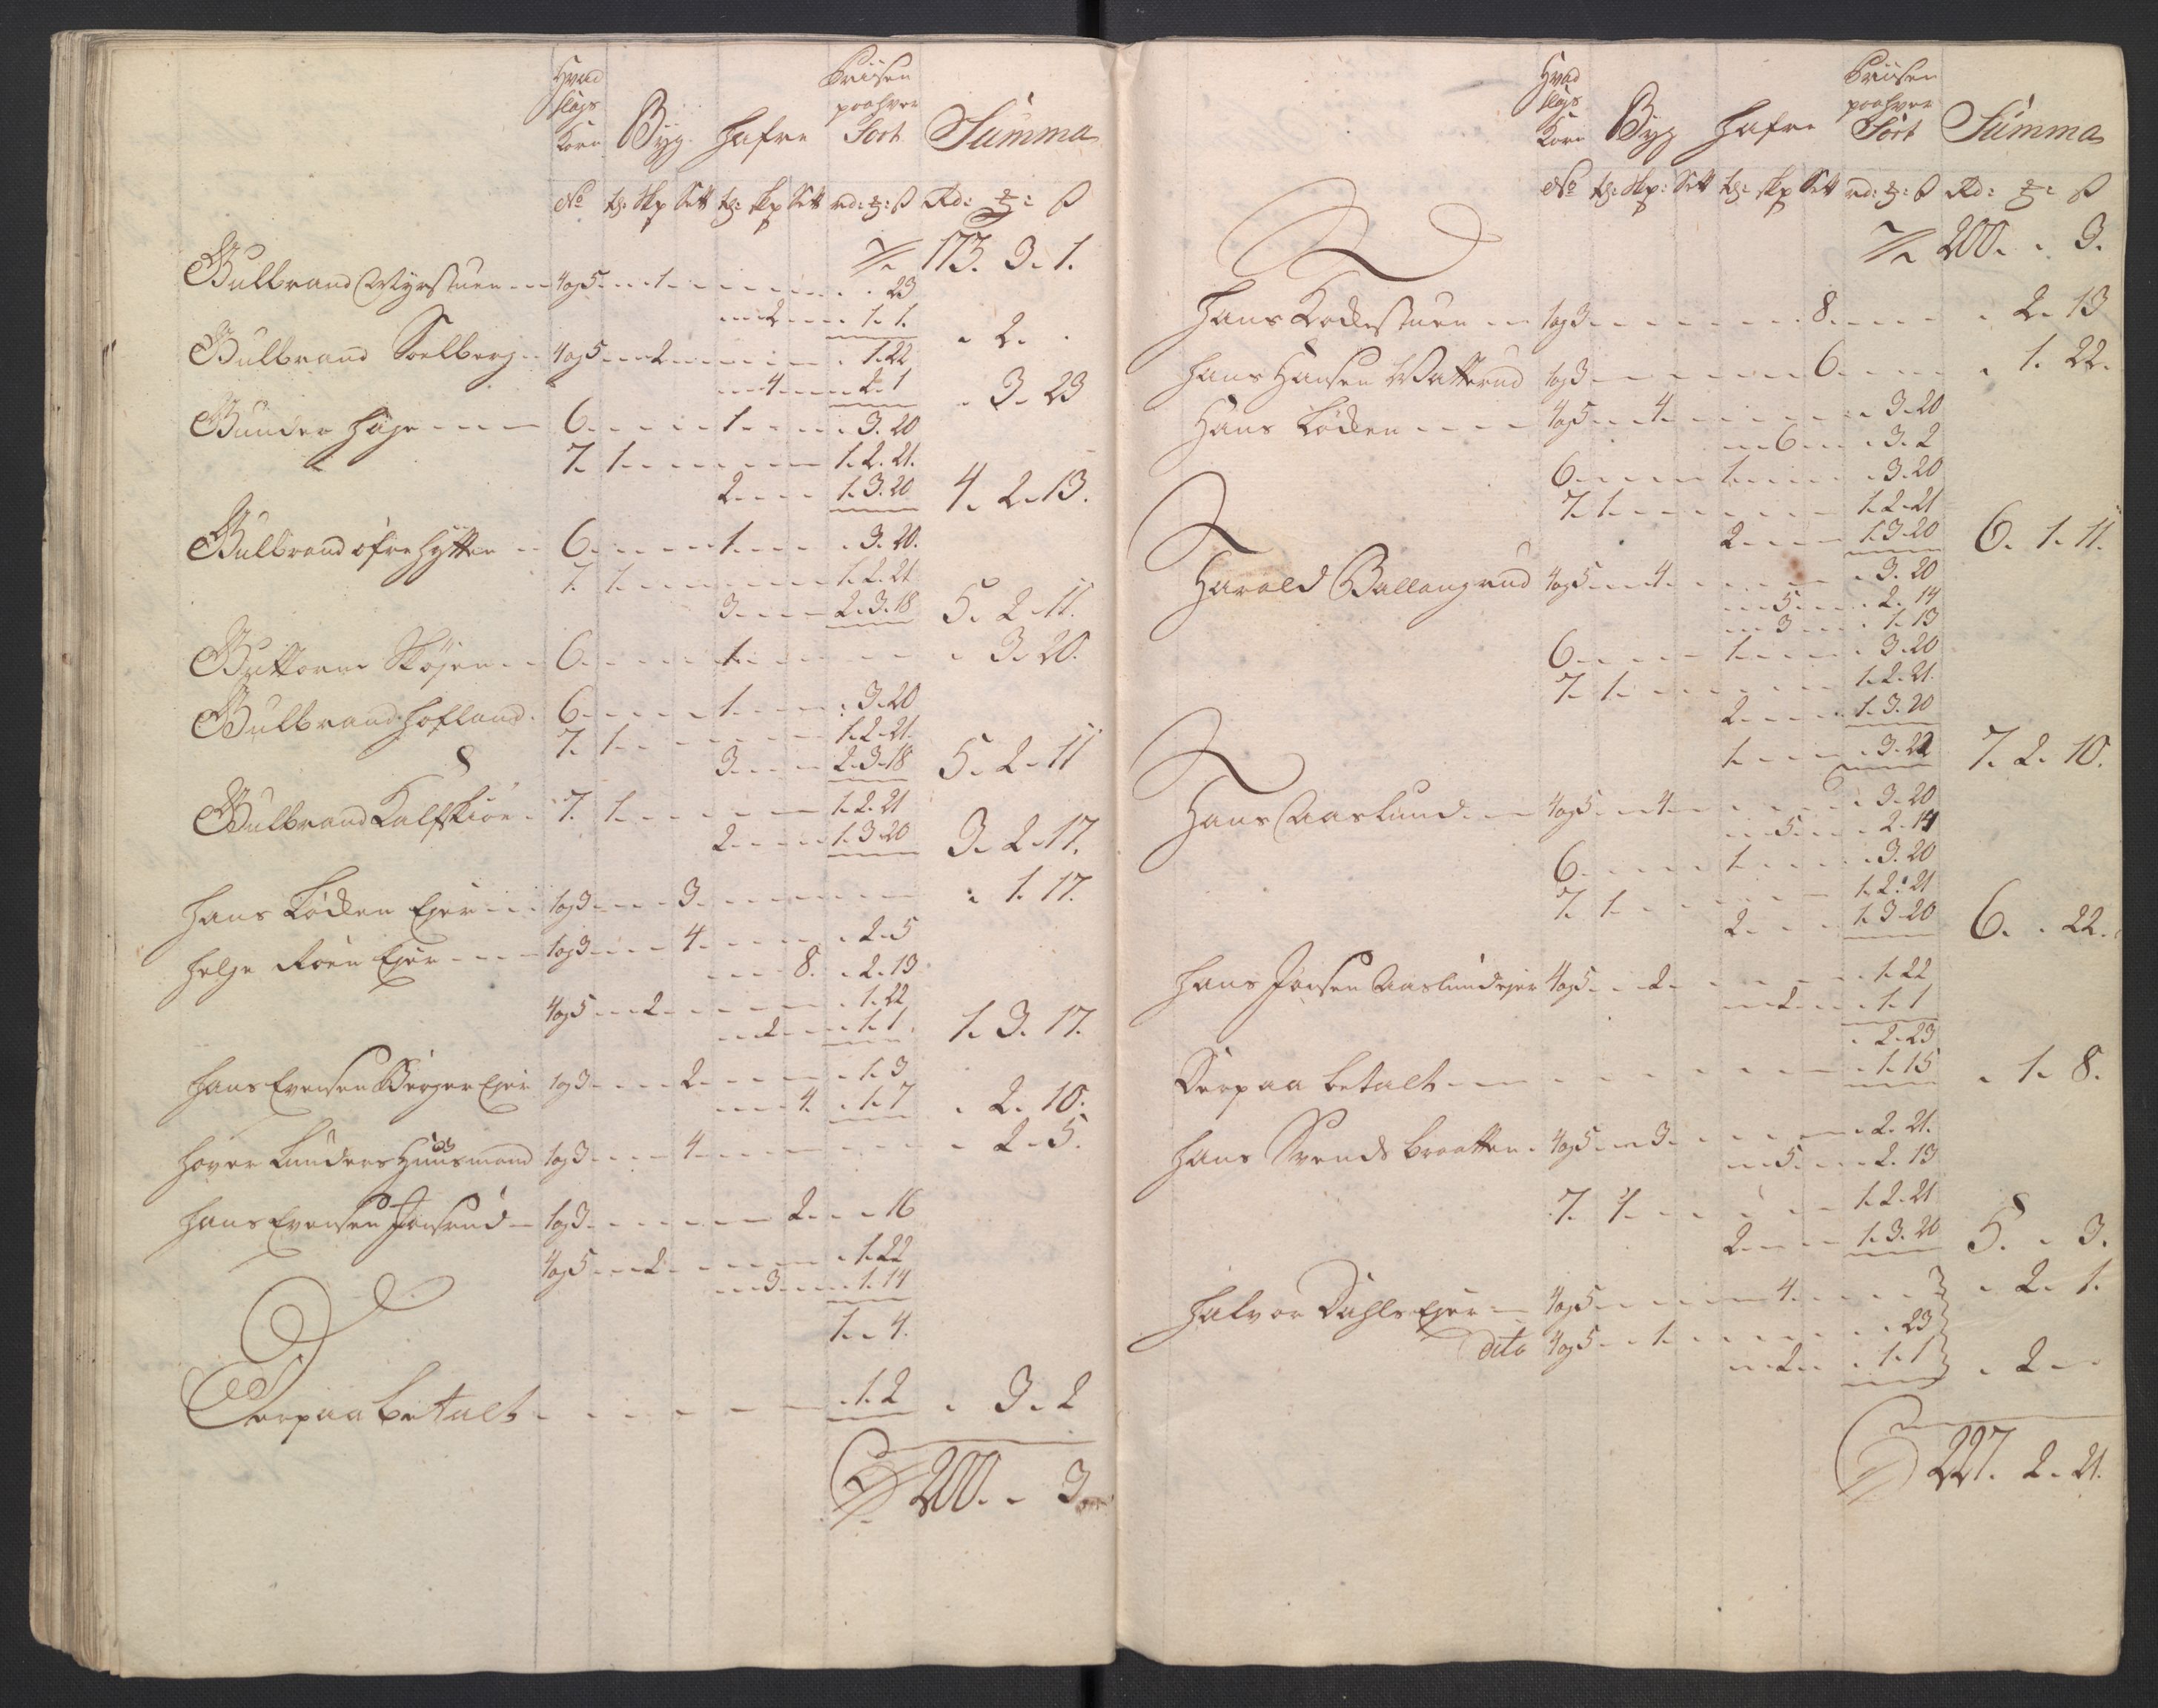 Hvad
slags
Korn Byg. Hafre Priisen
paa hver
Sort Summa
No tr: Skp Sett tr: skp Sett rd: ƺ: ß Rd: ƺ: ß
173. 3. 1.
Gulbrand Myrstuen 4og5 1 23
2 1. 1. 2.
Gulbrand Soelberg 4og5 2 1.22
4 2. 1 3. 23
Gunder Hage 6. 1. 3. 20
7. 1. 1. 2. 21.
2. 1. 3. 20 4. 2. 13.
Gulbrand öfre Hytten 6. 1. 3. 20.
7. 1. 1. 2. 21
3. 2. 3. 18 5. 2. 11.
Guttorm Skøjen 6. 1. 3. 20.
Gulbrand Hofland 6. 1. 3. 20
7. 1. 1. 2. 21.
3. 2. 3. 18 5. 2. 11
Gulbrand Kalfskiøn 7. 1. 1. 2. 21
2. 1. 3. 20 3. 2. 17.
Hans Løcken Ejer 1og3 3. 1. 17.
Helge Roen Ejer 1og3 4. 2. 5
8. 2. 13
4og5 2 1. 22
2 1. 1. 1. 3. 17.
Hans Evensen Berger Ejer 1og3 2. 1. 3
4. 1. 7 2. 10.
Hover Lunders Huusmand 1og3 4. 2. 5.
Hans Evensen Jonsrud 1og3. 2. 16
4og5 2 1. 22
3 1. 14
1. 4.
Derpaa betalt 1. 2 3. 2
200. 3
Hvad
slags
Korn Byg Hafre Priisen
paa hver
Sort Summa
No tr: Skp: Sett tr: skp Sett rd: ƺ: ß Rd: ƺ: ß
200. 3.
Hans Kockestuen 1og3 8. 2. 13
Hans Hansen Watterud 1og3 6. 1. 22.
Hans Løcken 4og5 4 3. 20
6 3. 2
6. 1. 3. 20
7. 1. 1. 2. 21
2. 1. 3. 20 6. 1. 11.
Harald Ballangrud 4og5 4 3. 20
5 2. 14
3 1. 13
6. 1. 3. 20
7. 1. 1. 2. 21.
2. 1. 3. 20
1. 3. 22 7. 2. 10.
Hans Aaslund 4og5 4 3. 20
5 2. 14
6. 1. 3. 20
7. 1. 1. 2. 21
2. 1. 3. 20 6. 22.
Hans Joensen Aaslund ejer 4og5 2 1. 22
2 1. 1
2. 23
Derpaa betalt 1. 15 1. 8.
Hans Svends braatten 4og5 3 2. 21.
5 2. 13
7. 1. 1. 2. 21
2. 1. 3. 20 5. 3.
Halvor Dahls Ejer 4og5 4. 2. 1.
dito 4og5 1. 23
2 1. 1 2
227. 2. 21.